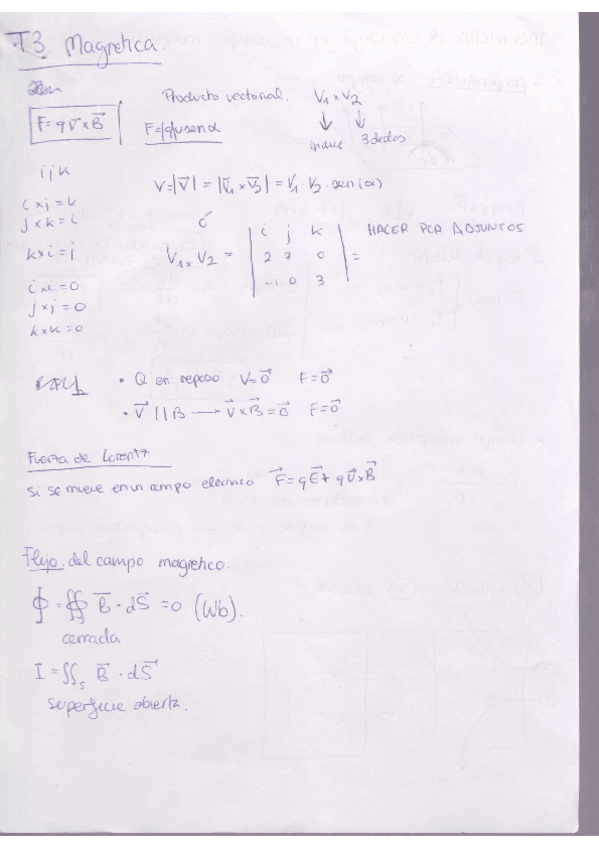 T3. Magnetica.
F=qv⃗×B⃗
Producto vectorial. V₁×V₂
F=|q|vsenα
indice 3 dedos
i j k
V=|V⃗|=|V⃗₁×V⃗₂|=V₁·V₂·sen(α)
i×j=k
j×k=i
k×i=j
ó
V₁×V₂ = | i j k | =
| 2 2 0 |
| -1 0 3 |
HACER POR ADJUNTOS
i×i=0
j×j=0
k×k=0
• Q en reposo V=0⃗ F=0⃗
• V⃗ || B → V⃗×B⃗=0⃗ F=0⃗
Fuerza de Lorentz
Si se mueve en un campo electrico F⃗=qE⃗+qV⃗×B⃗
Flujo del campo magnetico.
ϕ=∯ B⃗·dS⃗=0 (Wb).
cerrada
I=∬s B⃗·dS⃗
superficie abierta.